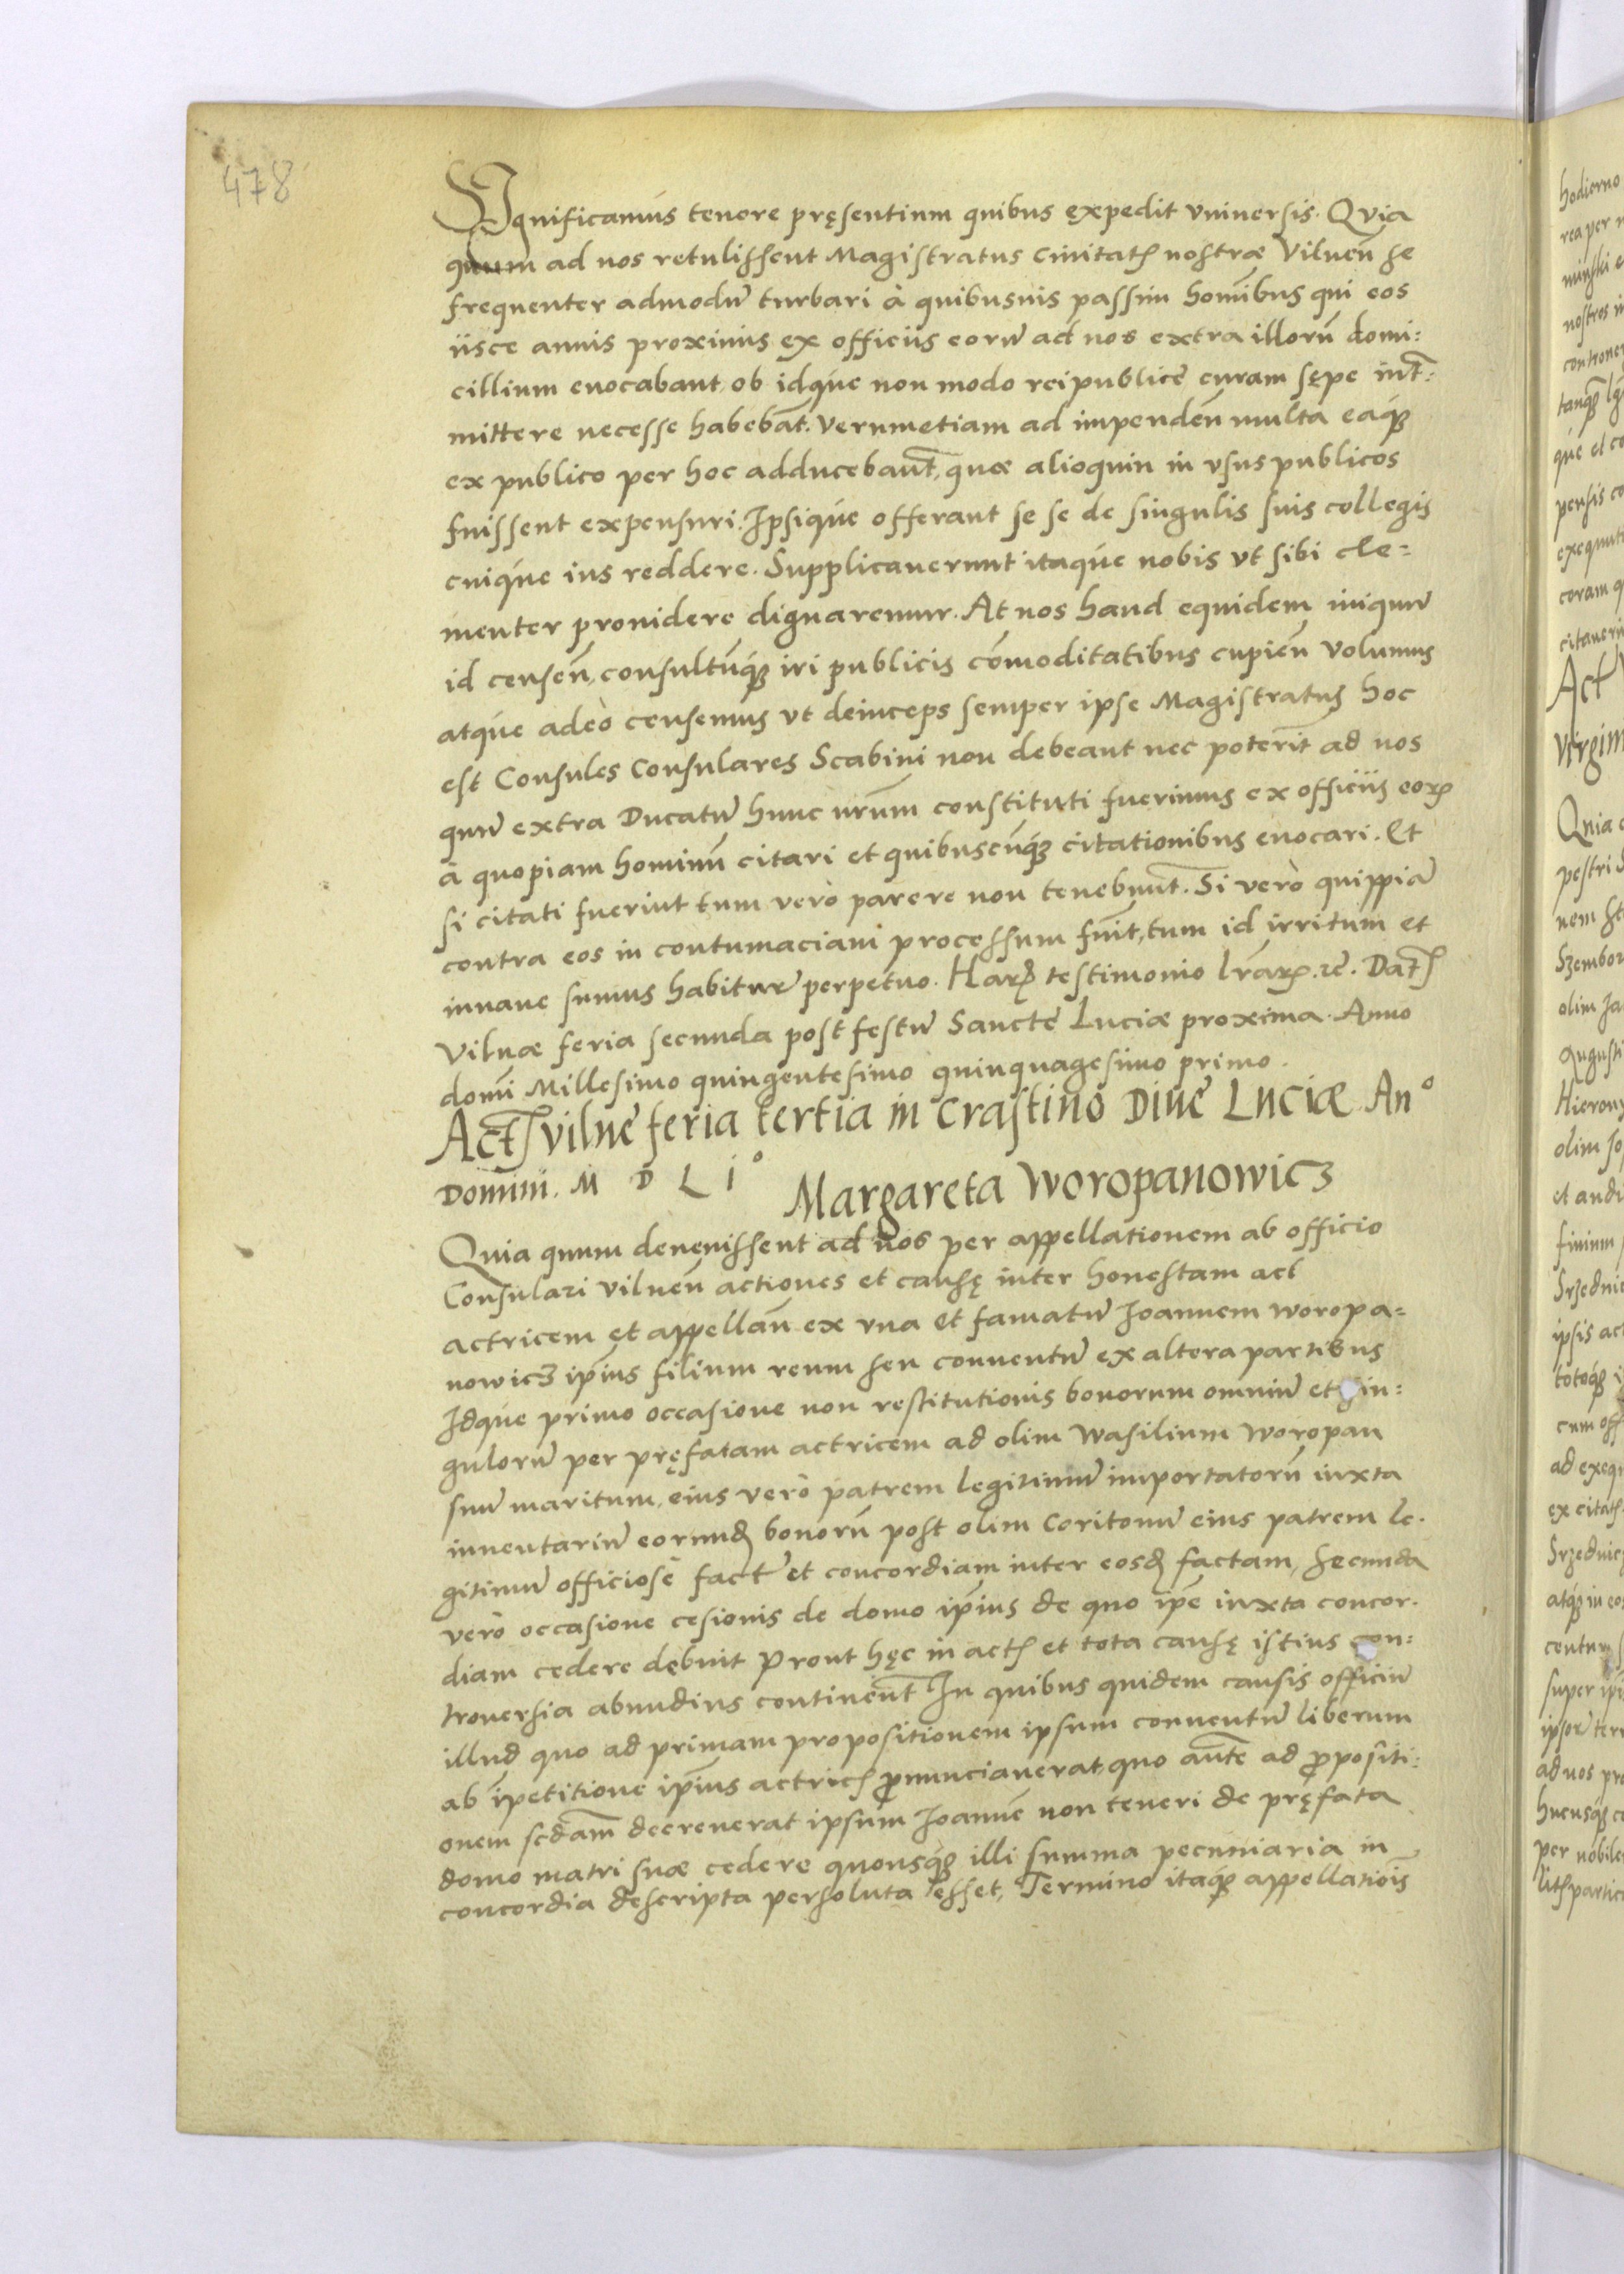 478
SIgnificamus tenore pręsentium quibus expedit vniuersis. Qvia
quum ad nos retulissent Magistratus ciuitatis nostræ Vilnen̄ se
frequenter admodū turbari à quibusuis passim homībus qui eos
iisce annis proximis ex officiis eorū ad nos extra illorū domi:
cillium euocabant, ob idque non modo reipublicę curam sępe int̄:
mittere necesse habebāt. Verumetiam ad impenden̄ multa eaqꝫ
ex publico per hoc adducebant̄, quæ alioquin in vsus publicos
fuissent expensuri. Ipsique offerant se se de singulis suis collegis
cuique ius reddere. Supplicauerunt itaque nobis vt sibi cle=
menter prouidere dignaremur. At nos haud equidem iniquū
id censen̄, consultūqꝫ iri publicis cōmoditatibus cupien̄ volumus
atque adeò censemus vt deinceps semper ipse Magistratus hoc
est Consules Consulares Scabini non debeant nec poterit̄ ad nos
quū extra Ducatū hunc nrūm constituti fuerimus ex officiis eoꝝ
à quopiam hominū citari et quibuscūqꝫ citationibus euocari. Et
si citati fuerint tum verò parere non tenebunt̄. Si verò quippiā
contra eos in contumaciam processum fuit̄, tum id irritum et
innane sumus habiturj perpetuo. Haꝝ testimonio lr̄aꝝ. rē. Datꝭ
Vilnæ feria secunda post festū Sanctę Luciæ proxima. Anno
domī Millesimo quingentesimo quinquagesimo primo.
Actꝭ vilnę feria tertia in Crastino Diuę Luciæ. An°
Domini. M D L i°
Margareta Woropanowicz
Quia quum deuenissent ad nos per appellationem ab officio
Consulari vilnen̄ actiones et causę inter honestam act
actricem et appellan̄ ex vna et famatū Joannem woropa=
nowicz ip̄ius filium reum seu conuentū ex altera partibus
Idque primo occasione non restitutionis bonorum omniū et sin:
gulorū per pręfatam actricem ad olim Wasilium Woropan
suū maritum, eius verò patrem legitimū importatorū iuxta
inuentariū eorundꝫ bonorū post olim Coritonū eius patrem le.
gitimū officiosè fact̄ et concordiam inter eosdꝫ factam, secunda
verò occasione cesionis de domo ip̄ius de quo ip̄e iuxta concor.
diam cedere debuit Prout hęc in actꝭ et tota causę istius con:
trouersia abundius continent̄ In quibus quidem causis officiū
illud quo ad primam propositionem ipsum conuentū liberum
ab ip̄etitione ip̄ius actricꝭ p̄nunciauerat, quo aut̄e ad p̄positi:
onem scd̄am decreuerat ipsum Joannē non teneri de pręfata
domo matri suæ cedere quousqꝫ illi summa pecuniaria in
concordia descripta persoluta esset, Termino itaqꝫ appellatiois̄